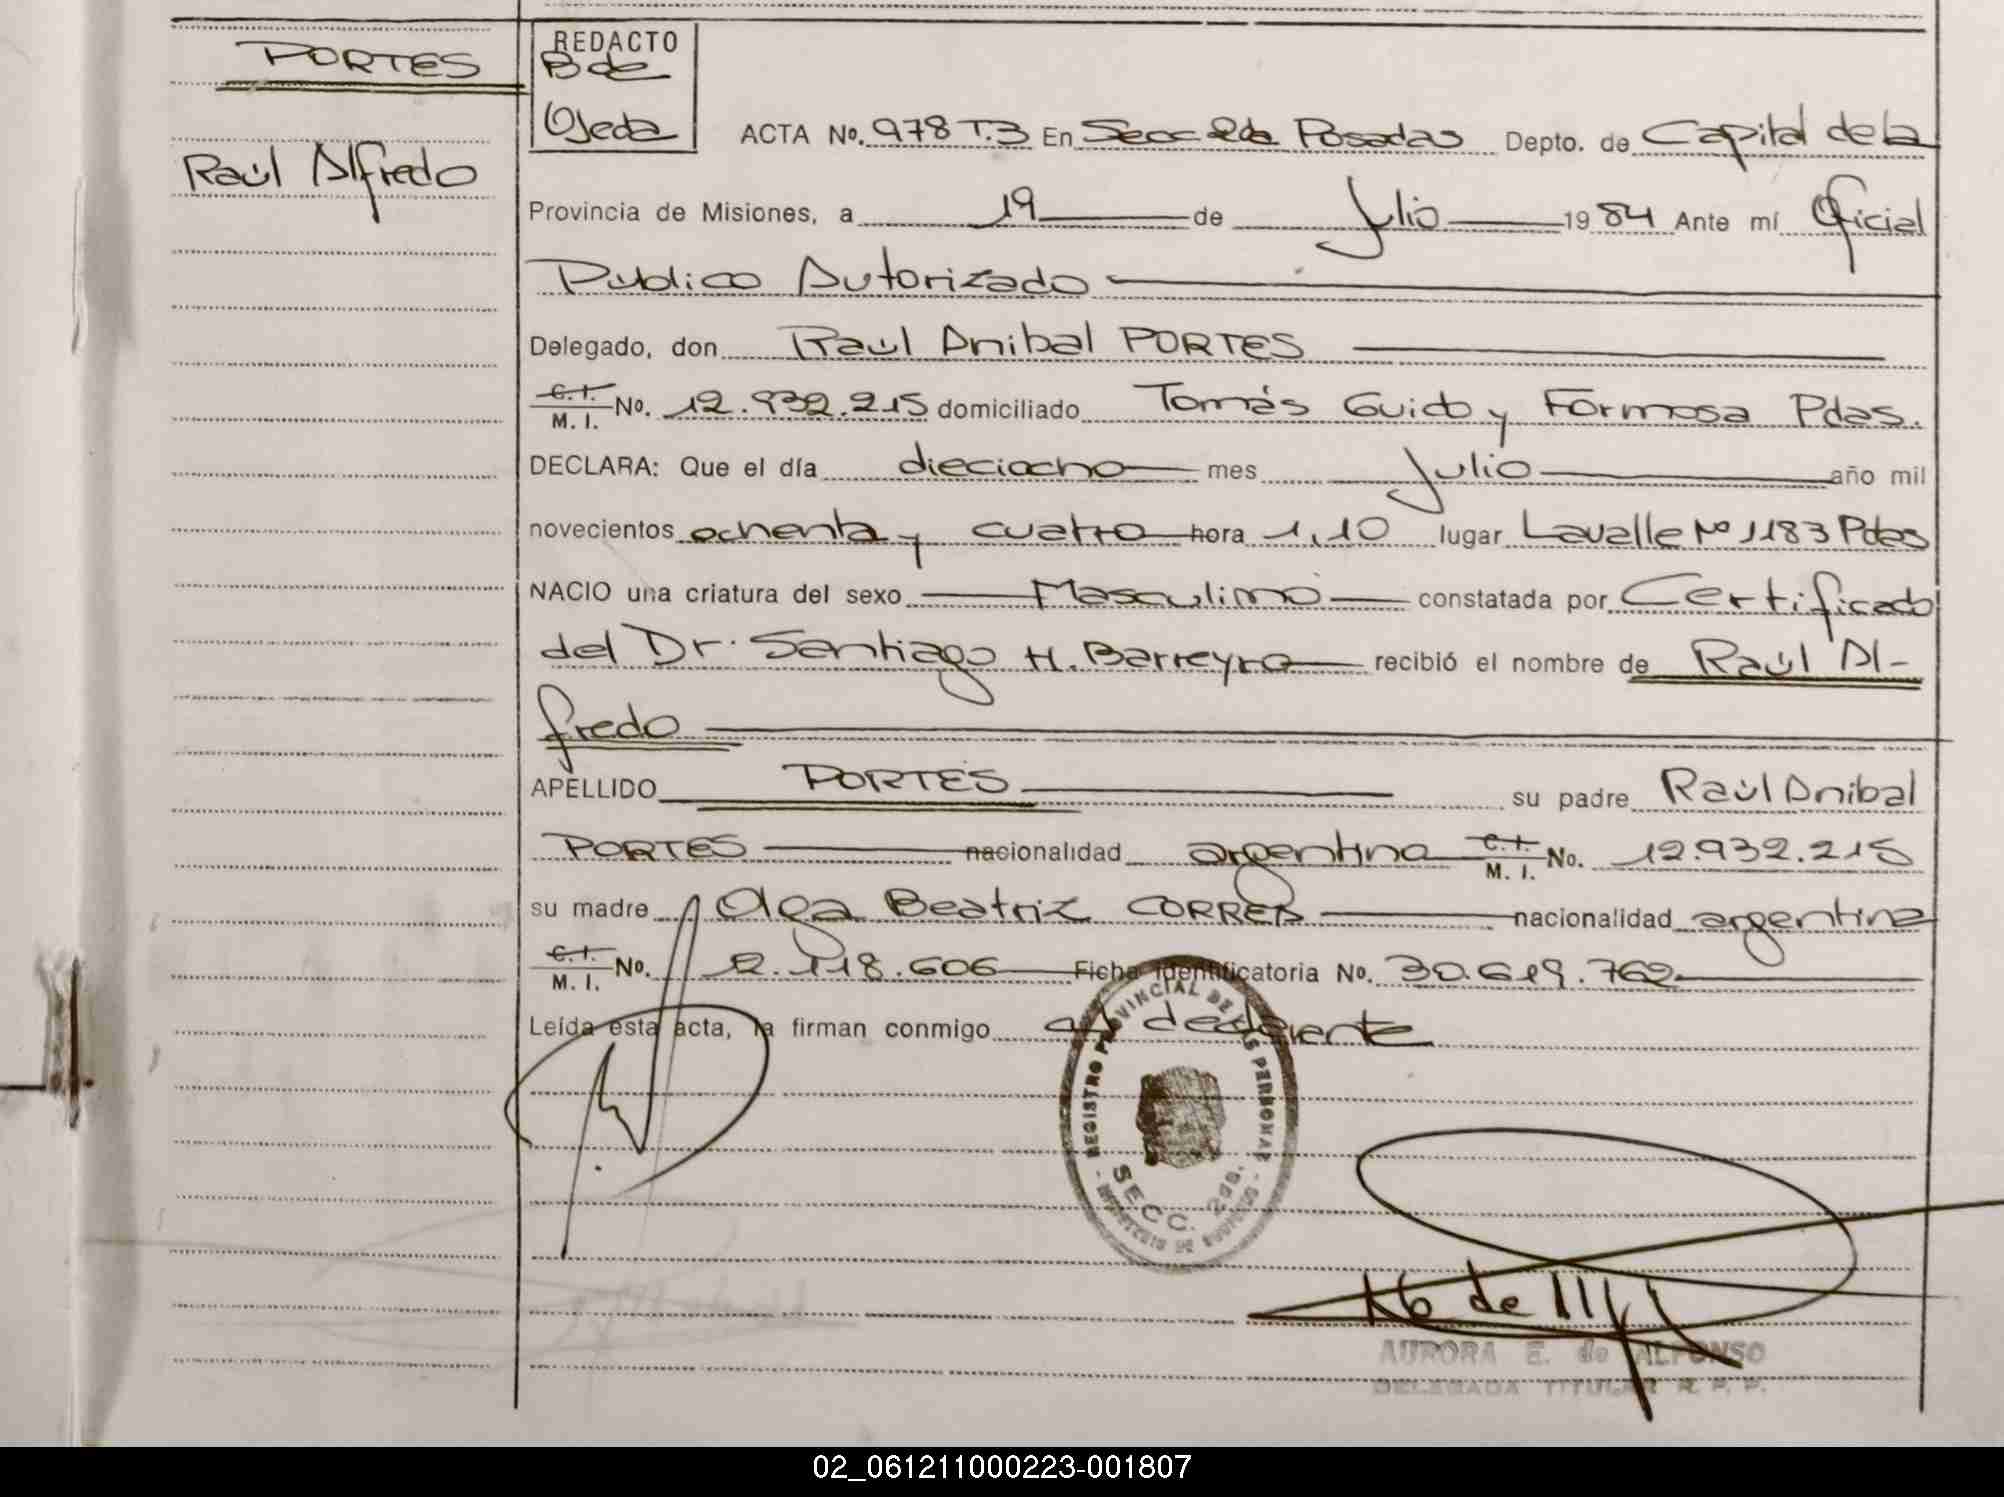 PORTES
Raúl Alfredo
REDACTO
B de
Ojeda
ACTA No. 978 T.3 En Secc 2da Posadas Depto. de Capital de la
Provincia de Misiones, a 19 de Julio 1984 Ante mí Oficial
Público Autorizado
Delegado, don Raúl Anibal PORTES
C.I. M. I. No. 12.932.215 domiciliado Tomás Guido y Formosa Pdas.
DECLARA: Que el día dieciocho mes Julio año mil
novecientos ochenta y cuatro hora 1,10 lugar Lavalle Nº 1183 Pdas
NACIO una criatura del sexo Masculino constatada por Certificado
del Dr. Santiago H. Barreyro recibió el nombre de Raúl Al-
fredo
APELLIDO PORTES su padre Raúl Anibal
PORTES nacionalidad argentina C.I. M. I. No. 12.932.215
su madre Olga Beatriz CORREA nacionalidad argentina
C.I. M. I. No. 12.118.606 Ficha Identificatoria No. 30.619.762
Leída esta acta, la firman conmigo el declarante
REGISTRO PROVINCIAL DE LAS PERSONAS
SECC. 2da.
AURORA E. de ALFONSO
DELEGADA TITULAR R. P. P.
02_061211000223-001807